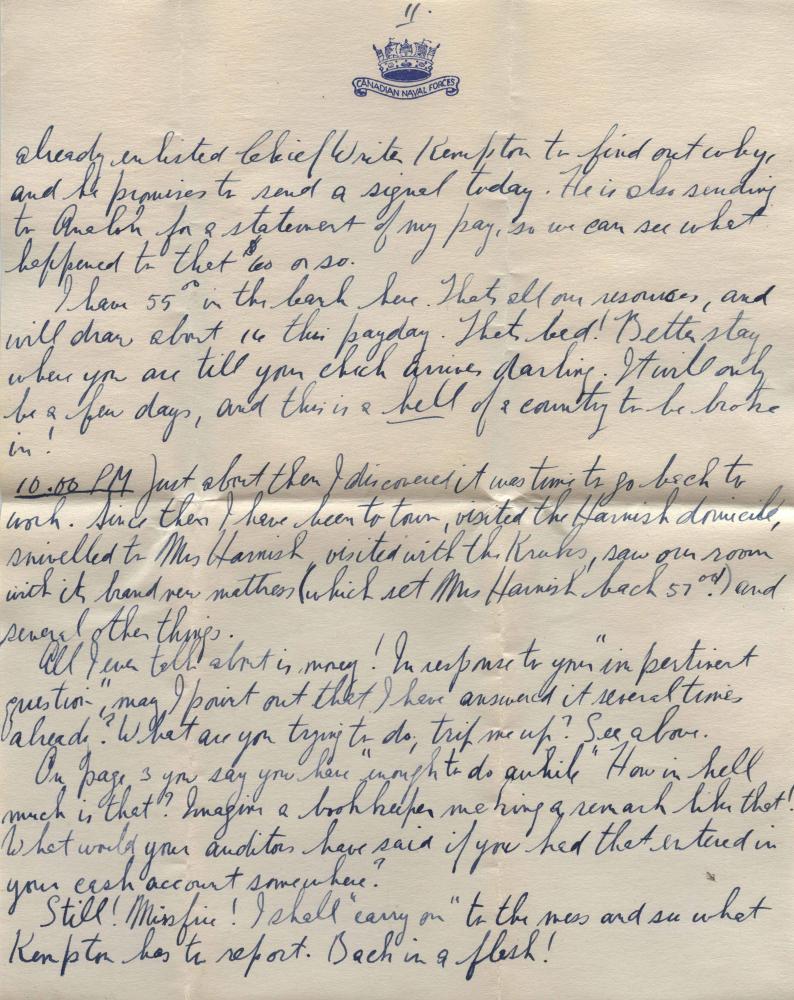 11.
CANADIAN NAVAL FORCES
already enlisted Chief Writer Kempton to find out why,
and he promises to send a signal today. He is also sending
to for a statement of my pay, so we can see what
happened to that $60 or so.
I have 55⁰⁰ in the bank here. Thats all our resources, and
will draw about 14 this payday. Thats bad! Better stay
where you are till your check arrives darling. It will only
be a few days, and this is a hell of a country to be broke
in!
10.00 PM Just about then I discovered it was time to go back to
work. Since then I have been to town, visited the Harnish domicile,
snivelled to Mrs Harnish, visited with the, saw our room
with its brand new mattress (which set Mrs Harnish back 57⁰⁰!) and
several other things.
All I ever talk about is money! In response to your "impertinent
question", may I point out that I have answered it several times
already? What are you trying to do, trip me up? See above.
On page 3 you say you have "enough to do awhile" How in hell
much is that? Imagine a bookkeeper making a remark like that!
What would your auditors have said if you had that entered in
your cash account somewhere?
Still! Missfire! I shall "carry on" to the mess and see what
Kempton has to report. Back in a flash!